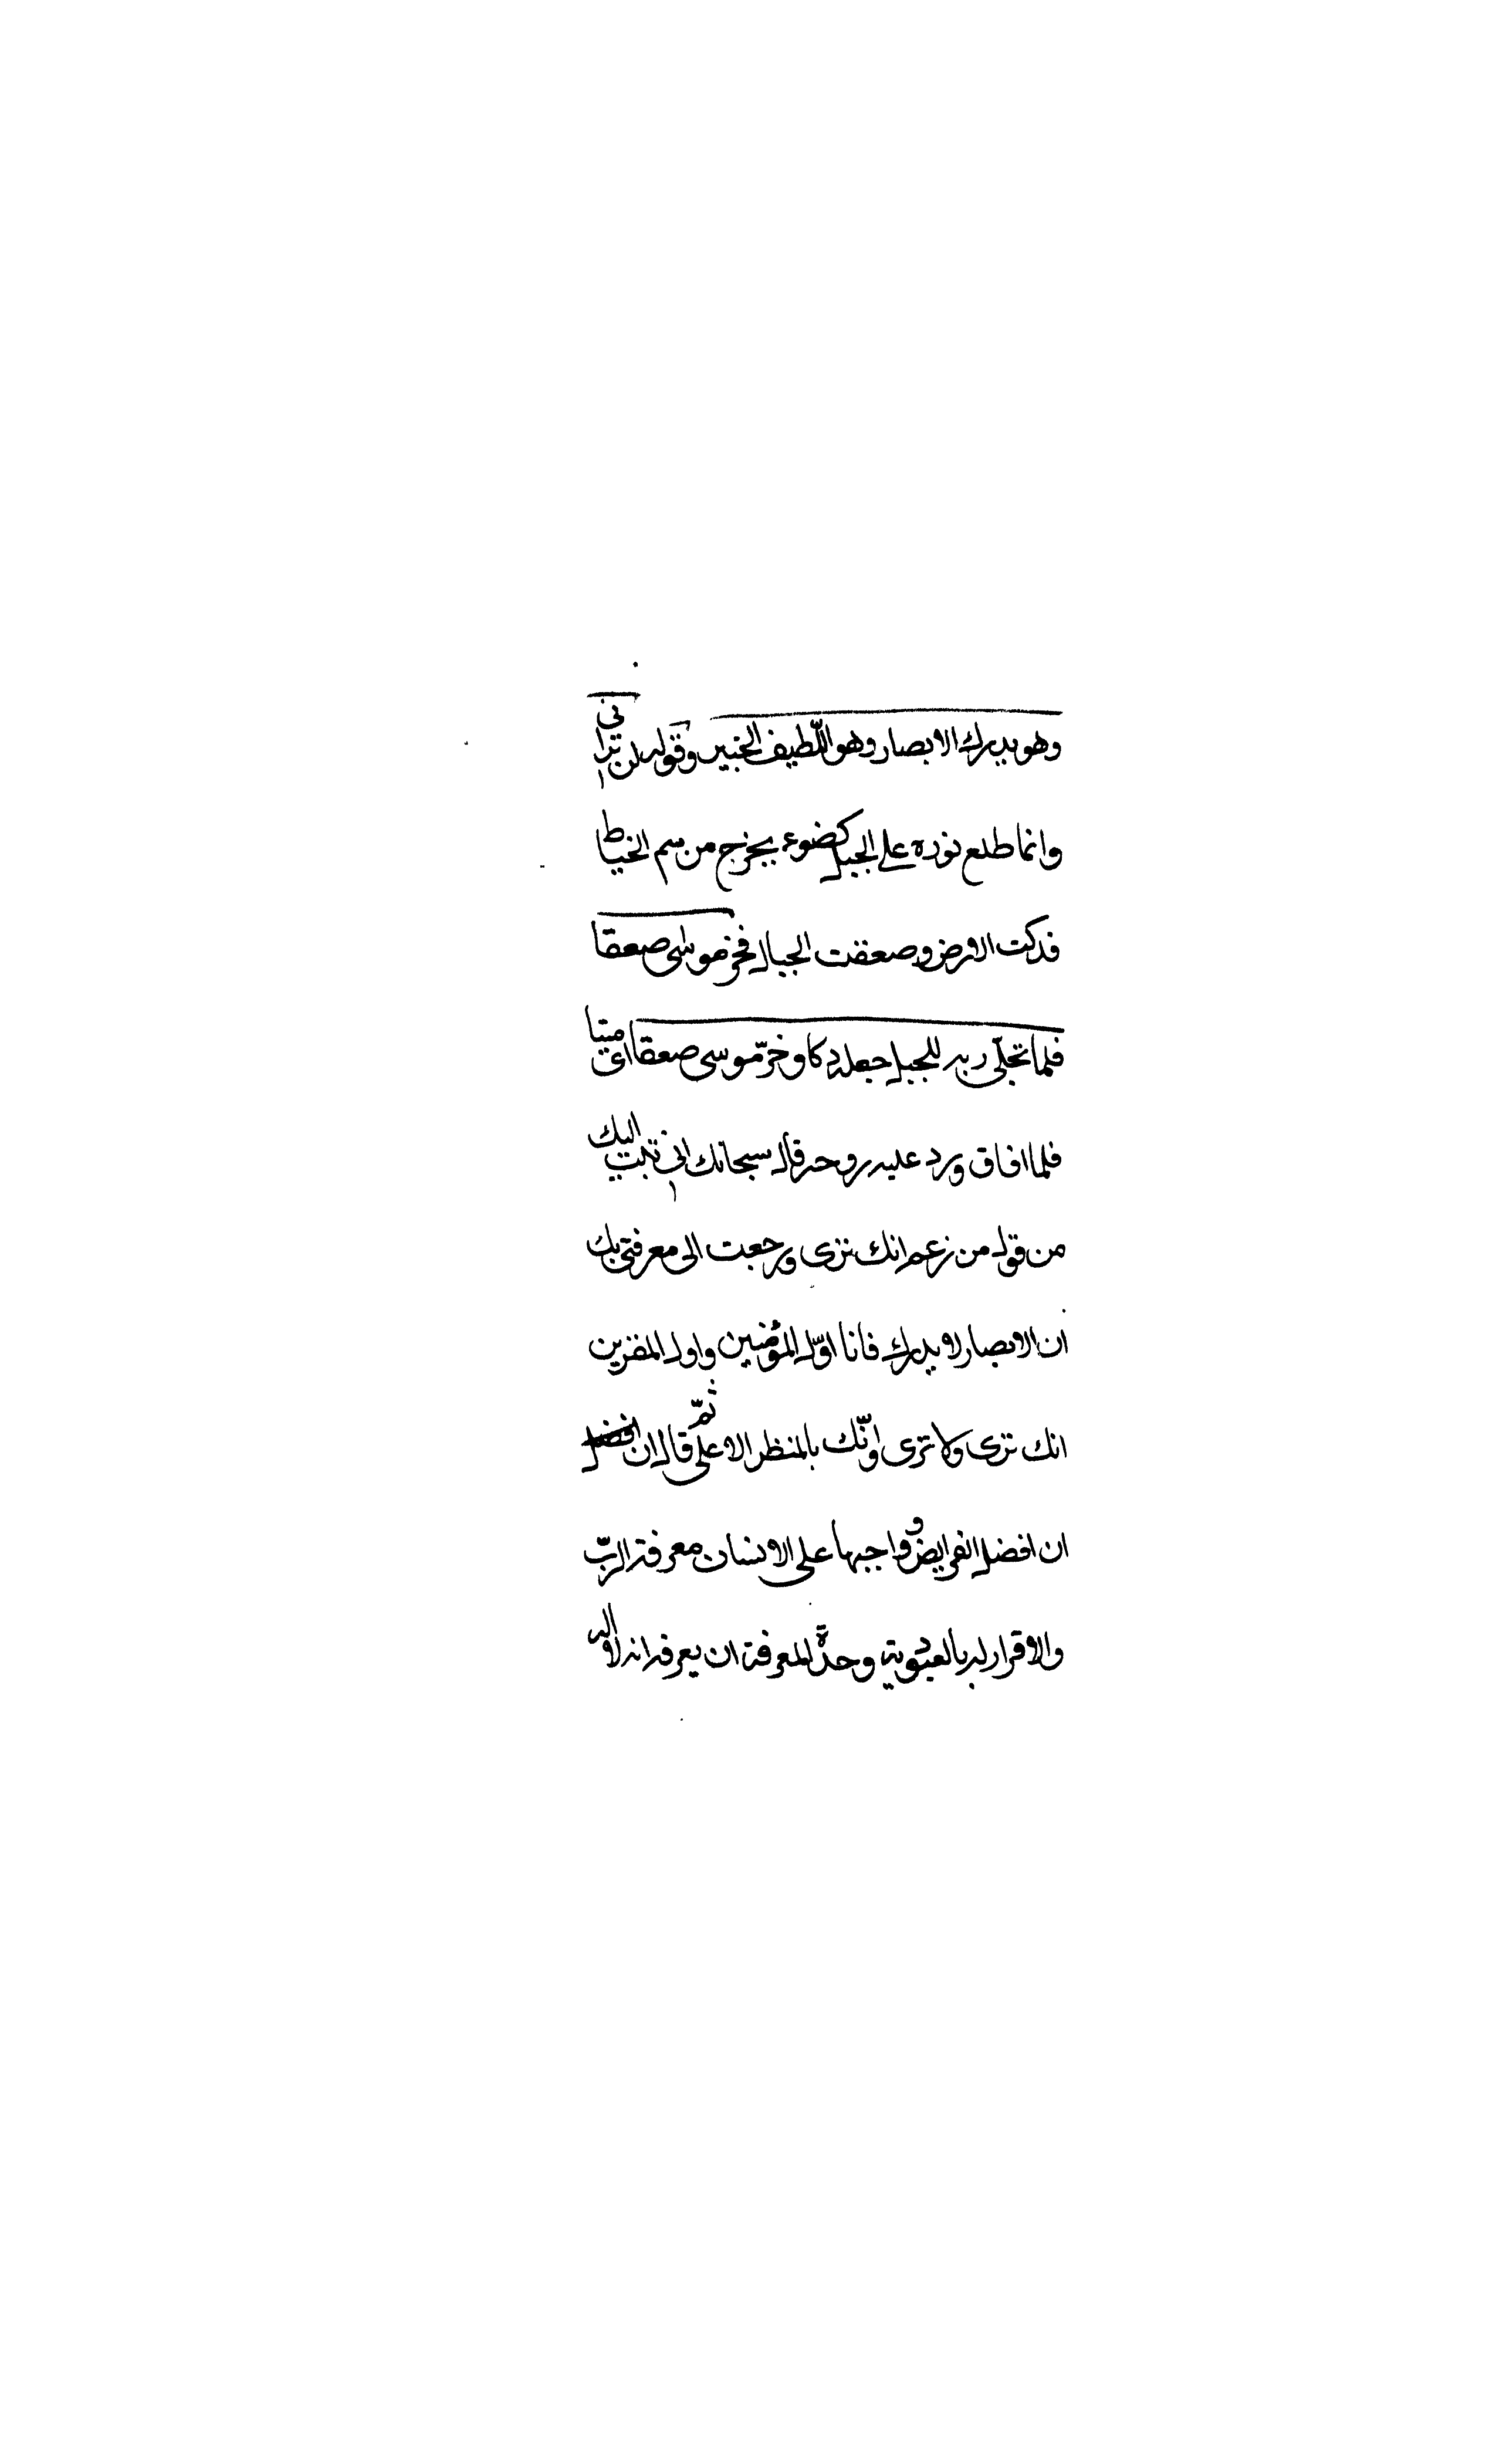 وهو يدرك الابصار وهو اللّطيف الخبير وقوله لن ترانى
وانما طلع نوره على الجبل كضوء يخرج من سم الخياط
فدكت الارض وصعقت الجبال فخر موسى صعقا
فلما تجلّى ربه للجبل جعله دكا وخرّ موسى صعقا اى ميتا
فلما افاق ورد عليه روحه قال سبحانك انى تبت اليك
من قول من زعم انك ترى ورجعت الى معرفتى بك
ان الابصار لا يدرك فانا اوّل المؤمنين واول المقرين
انك ترى ولا ترى وانّك بالمنظر الاعلى ثمّ قال ان افضل
ان افضل الفرايض واجبها على الانسان معرفة الربّ
والاقرار له بالعبودية وحدّ المعرفة ان يعرف انه لا اله